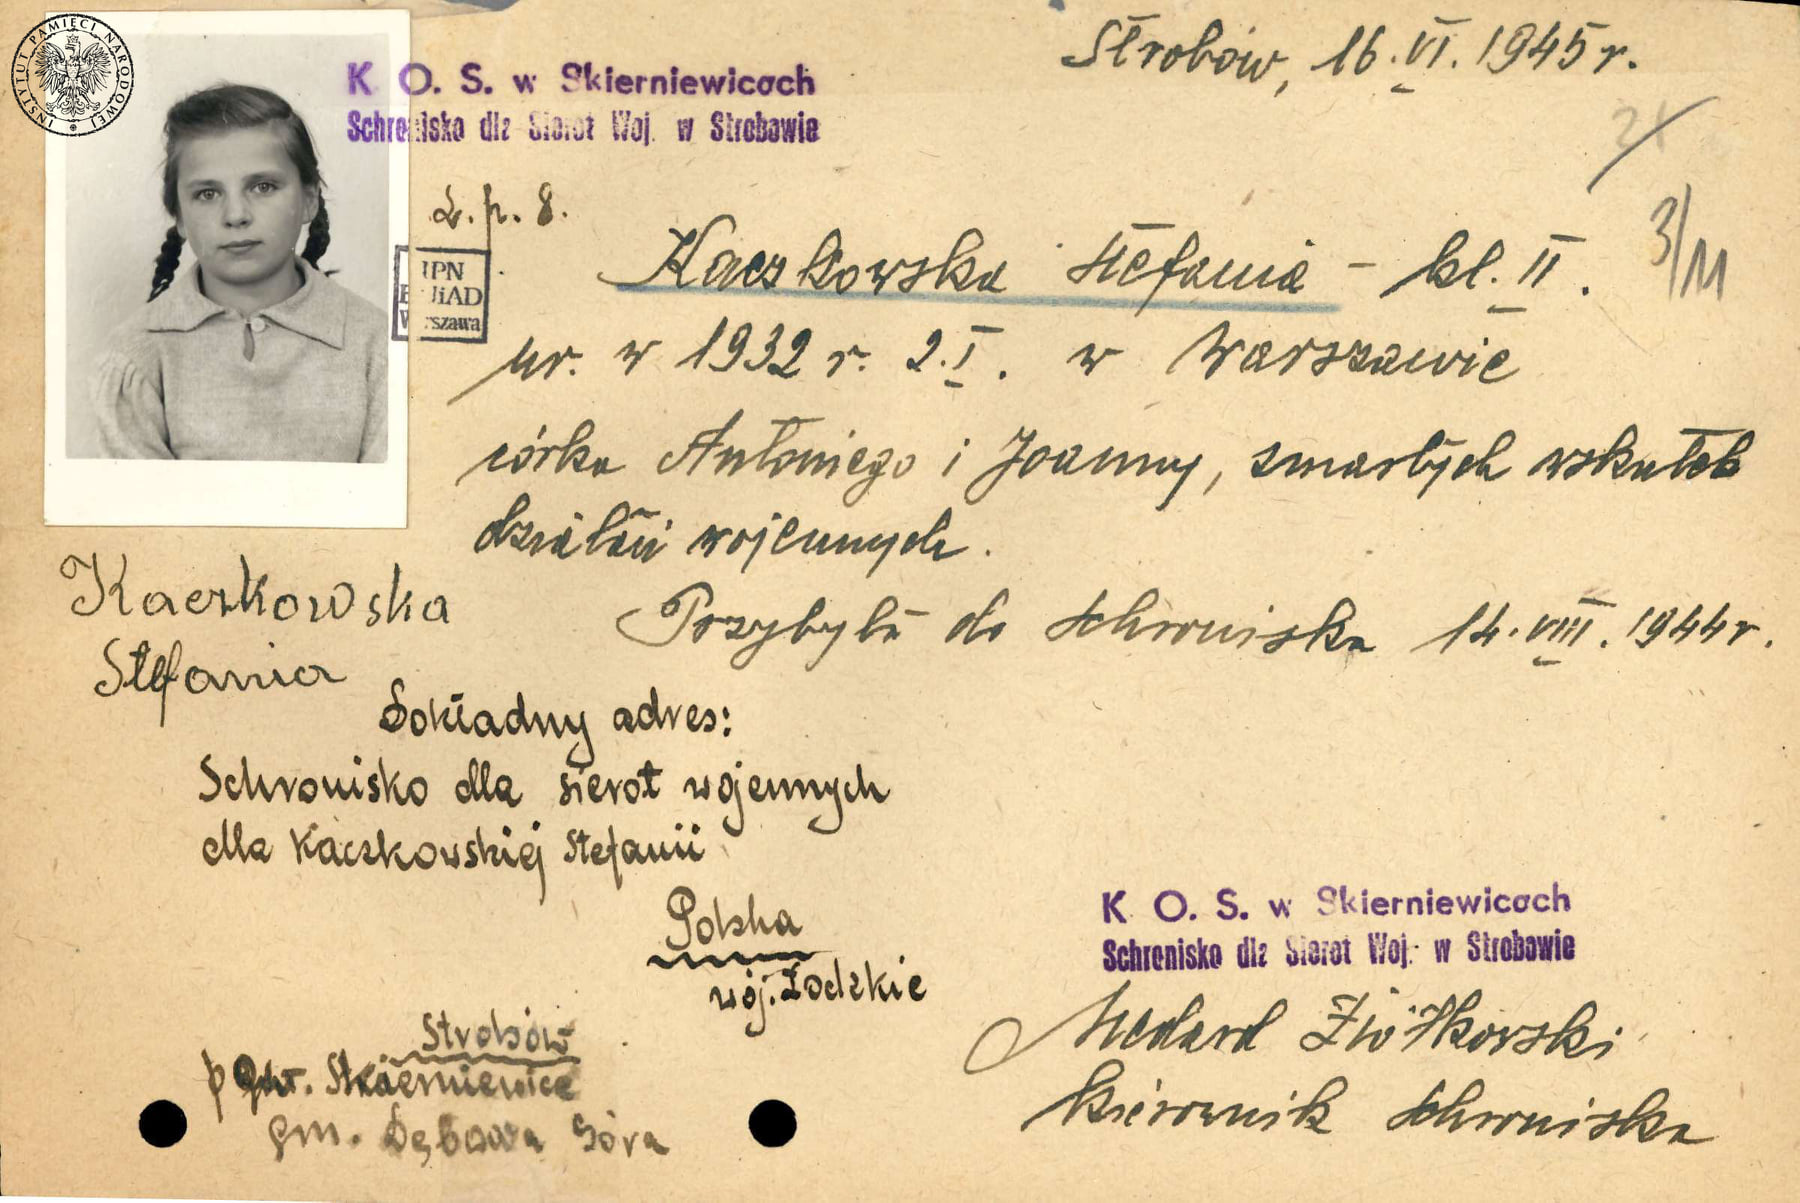 INSTYTUT PAMIĘCI NARODOWEJ
Strobów, 16.VI.1945 r.
K. O. S. w Skierniewicach
Schronisko dla Sierot Woj. w Strobowie
21
L. p. 8.
3/11
Kaczkowska Stefania – kl. II.
IPN
BUiAD
Warszawa
ur. w 1932 r. 2.I. w Warszawie
córka Antoniego i Joanny, zmarłych wskutek
działań wojennych.
Kaczkowska
Stefania
Przybyła do schroniska 14.VIII.1944 r.
Dokładny adres:
Schronisko dla sierot wojennych
dla Kaczkowskiej Stefanii
Polska
woj. Łodzkie
Strobów
p. Skierniewice
gm. Dębowa Góra
K. O. S. w Skierniewicach
Schronisko dla Sierot Woj. w Strobowie
Medard Ziółkowski
kierownik schroniska